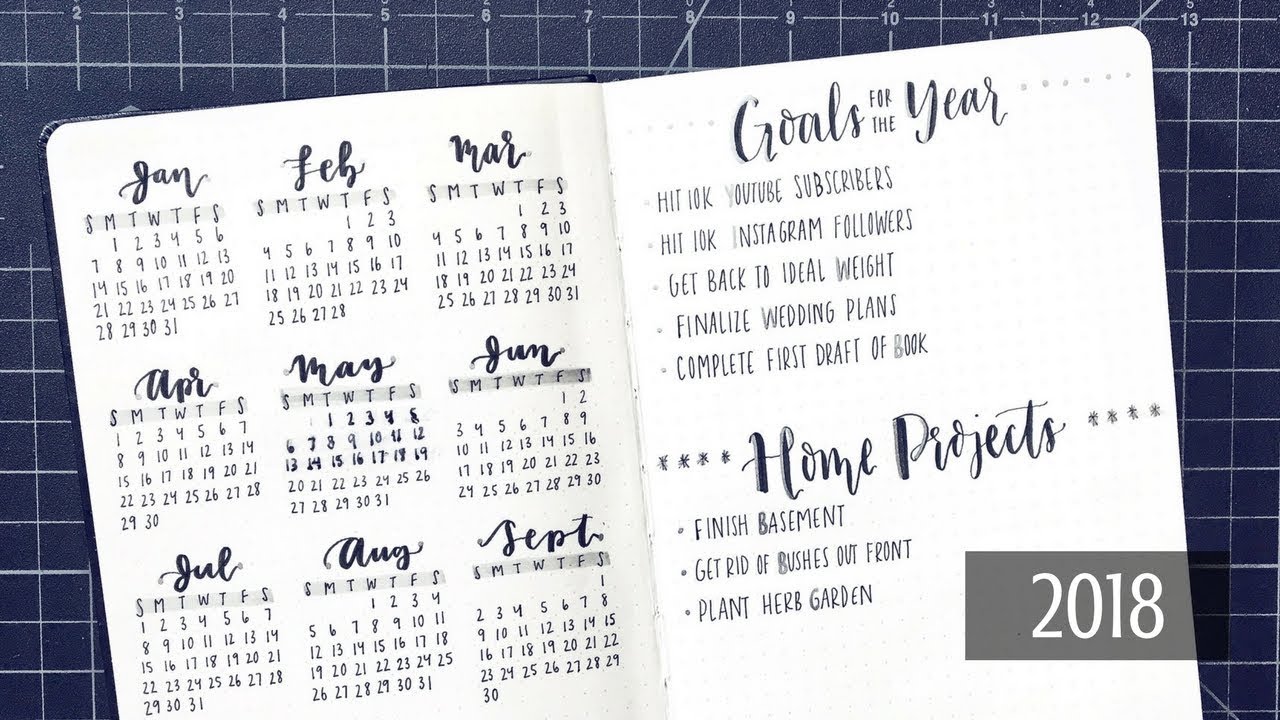 2 3 4 5 6 7 8 9 10 11 12 13
Jan
S M T W T F S
1 2 3 4 5 6
7 8 9 10 11 12 13
14 15 16 17 18 19 20
21 22 23 24 25 26 27
28 29 30 31
Feb
S M T W T F S
1 2 3
4 5 6 7 8 9 10
11 12 13 14 15 16 17
18 19 20 21 22 23 24
25 26 27 28
Mar
S M T W T F S
1 2 3
4 5 6 7 8 9 10
11 12 13 14 15 16 17
18 19 20 21 22 23 24
25 26 27 28 29 30 31
Apr
S M T W T F S
1 2 3 4 5 6 7
8 9 10 11 12 13 14
15 16 17 18 19 20 21
22 23 24 25 26 27 28
29 30
May
S M T W T F S
1 2 3 4 5
6 7 8 9 10 11 12
13 14 15 16 17 18 19
20 21 22 23 24 25 26
27 28 29 30 31
Jun
S M T W T F S
1 2
3 4 5 6 7 8 9
10 11 12 13 14 15 16
17 18 19 20 21 22 23
24 25 26 27 28 29 30
Jul
S M T W T F S
1 2 3 4 5 6 7
8 9 10 11 12 13 14
15 16 17 18 19 20 21
22 23 24 25 26 27 28
29 30 31
Aug
S M T W T F S
1 2 3 4
5 6 7 8 9 10 11
12 13 14 15 16 17 18
19 20 21 22 23 24 25
26 27 28 29 30 31
Sept
S M T W T F S
1
2 3 4 5 6 7 8
9 10 11 12 13 14 15
16 17 18 19 20 21 22
23 24 25 26 27 28 29
30
Goals FOR THE Year
· HIT 10K YOUTUBE SUBSCRIBERS
· HIT 10K INSTAGRAM FOLLOWERS
· GET BACK TO IDEAL WEIGHT
· FINALIZE WEDDING PLANS
· COMPLETE FIRST DRAFT OF BOOK
**** Home Projects ****
• FINISH BASEMENT
• GET RID OF BUSHES OUT FRONT
• PLANT HERB GARDEN
2018